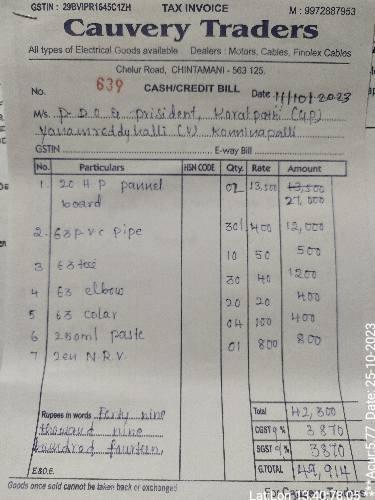 GSTIN : 29BVIPR1645C1ZH TAX INVOICE M : 9972887953
Cauvery Traders
All types of Electrical Goods available Dealers : Motors, Cables, Finolex Cables
Chelur Road, CHINTAMANI - 563 125.
No. 639 CASH/CREDIT BILL Date 11/10/2023
M/s P.D.O & prisident, (G.P)
(V)
GSTIN E-way Bill
No. Particulars HSN CODE Qty. Rate Amount
1. 20 H P pannel board 02 13,500 13,500
27,000
2. 63 p.v.c pipe 30 400 12,000
3 63 tee 10 50 500
4 63 elbow 30 40 1200
5 63 colar 20 20 400
6 250ml paste 04 100 400
7 2en N.R.V. 01 800 800
Rupees in words Ferty nine
thousand nine
houndrad fourteen
Total 42,300
CGST 9 % 3870
SGST 9 % 3870
G.TOTAL 49,914
E.&O.E.
Goods once sold cannot be taken back or exchanged.
For Cauvery Traders
Acur:5.77 Date: 25-10-2023